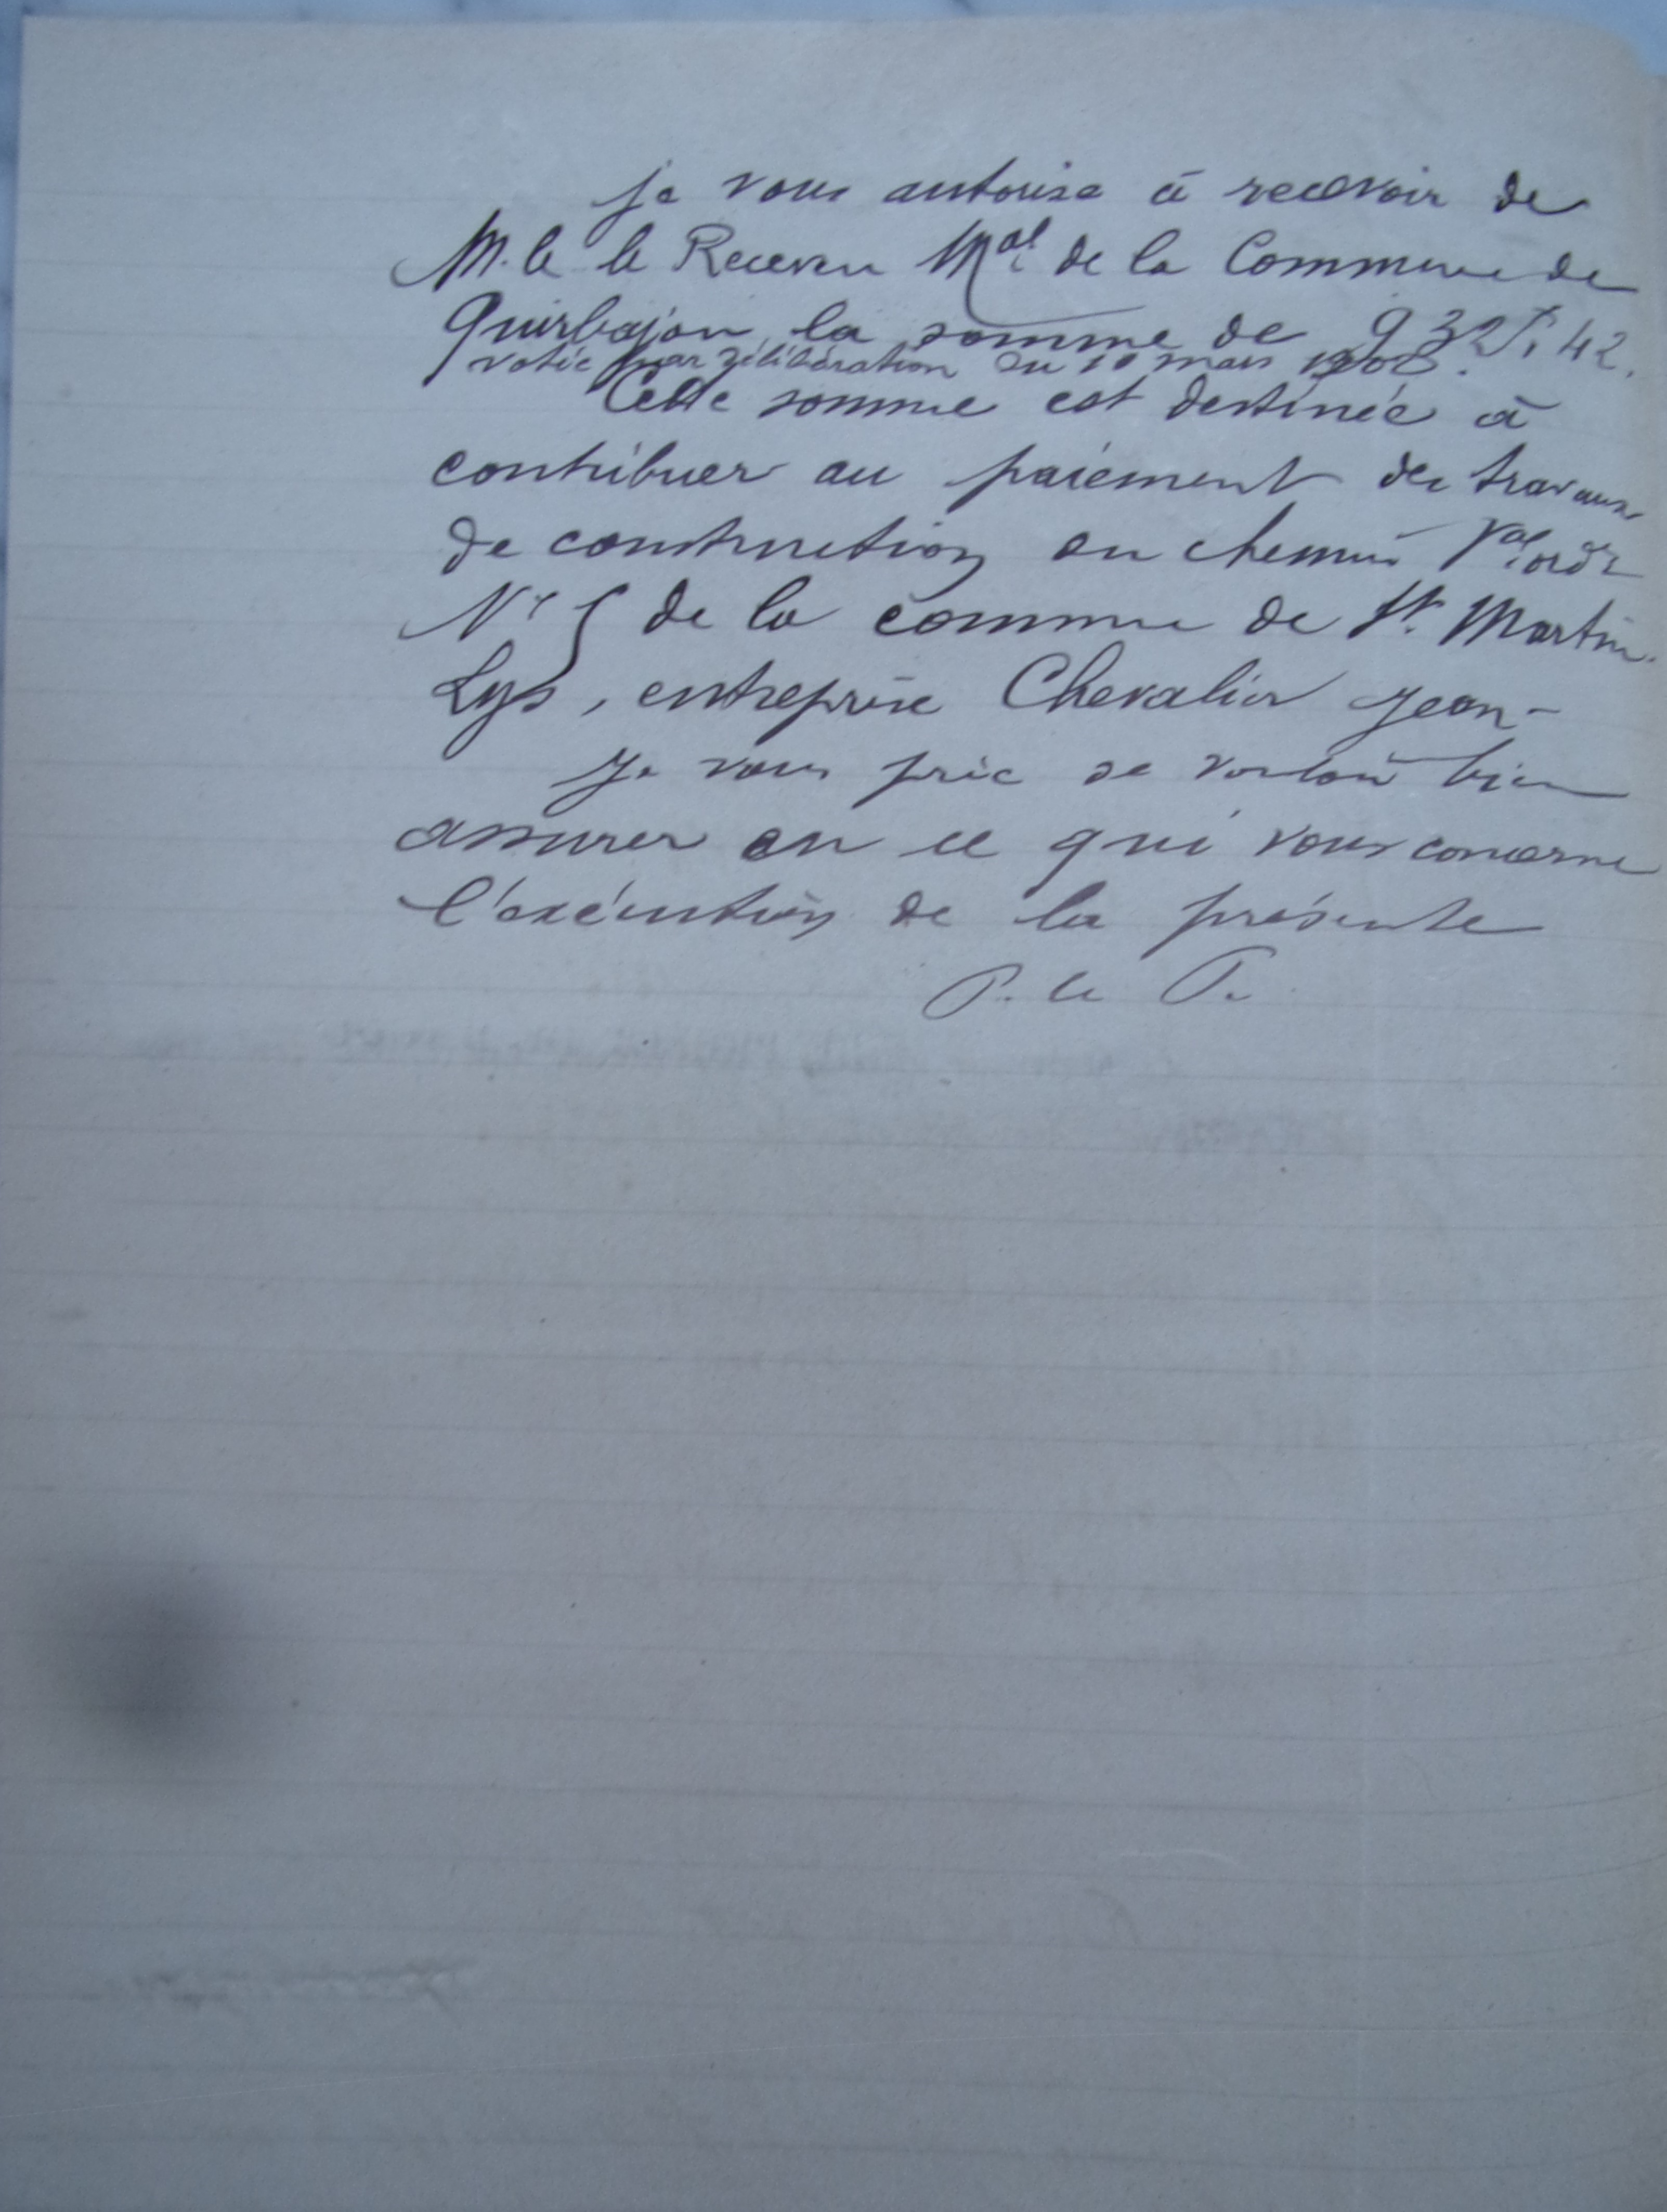 je vous autorise à recevoir de
M. le le Receveur Mal de la Commune de
Quirbajou la somme de 932f,42.
votée par délibération du 10 mars 1908.
Cette somme est destinée à
contribuer au paiement des travaux
de construction du chemin Val ordre
N° 5 de la commune de St. Martin-
Lys, entreprise Chevalier Jean-
Je vous prie de vouloir bien
assurer en ce qui vous concerne
l'exécution de la présente
P. le P.